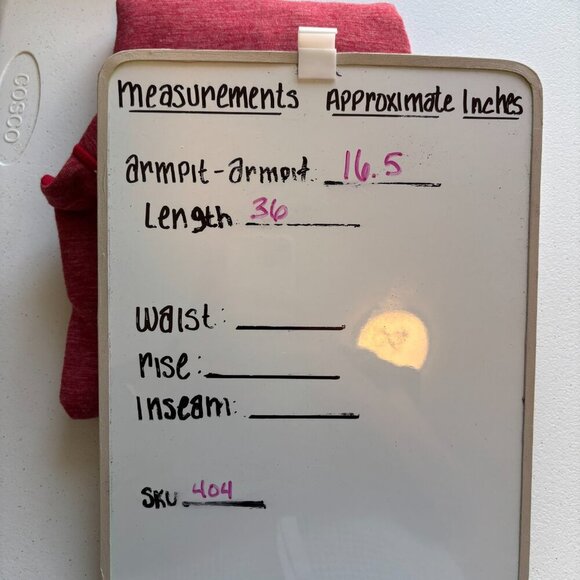 COSCO
measurements Approximate Inches
armpit-armpit 16.5
Length 36
waist:
rise:
Inseam:
SKU 404